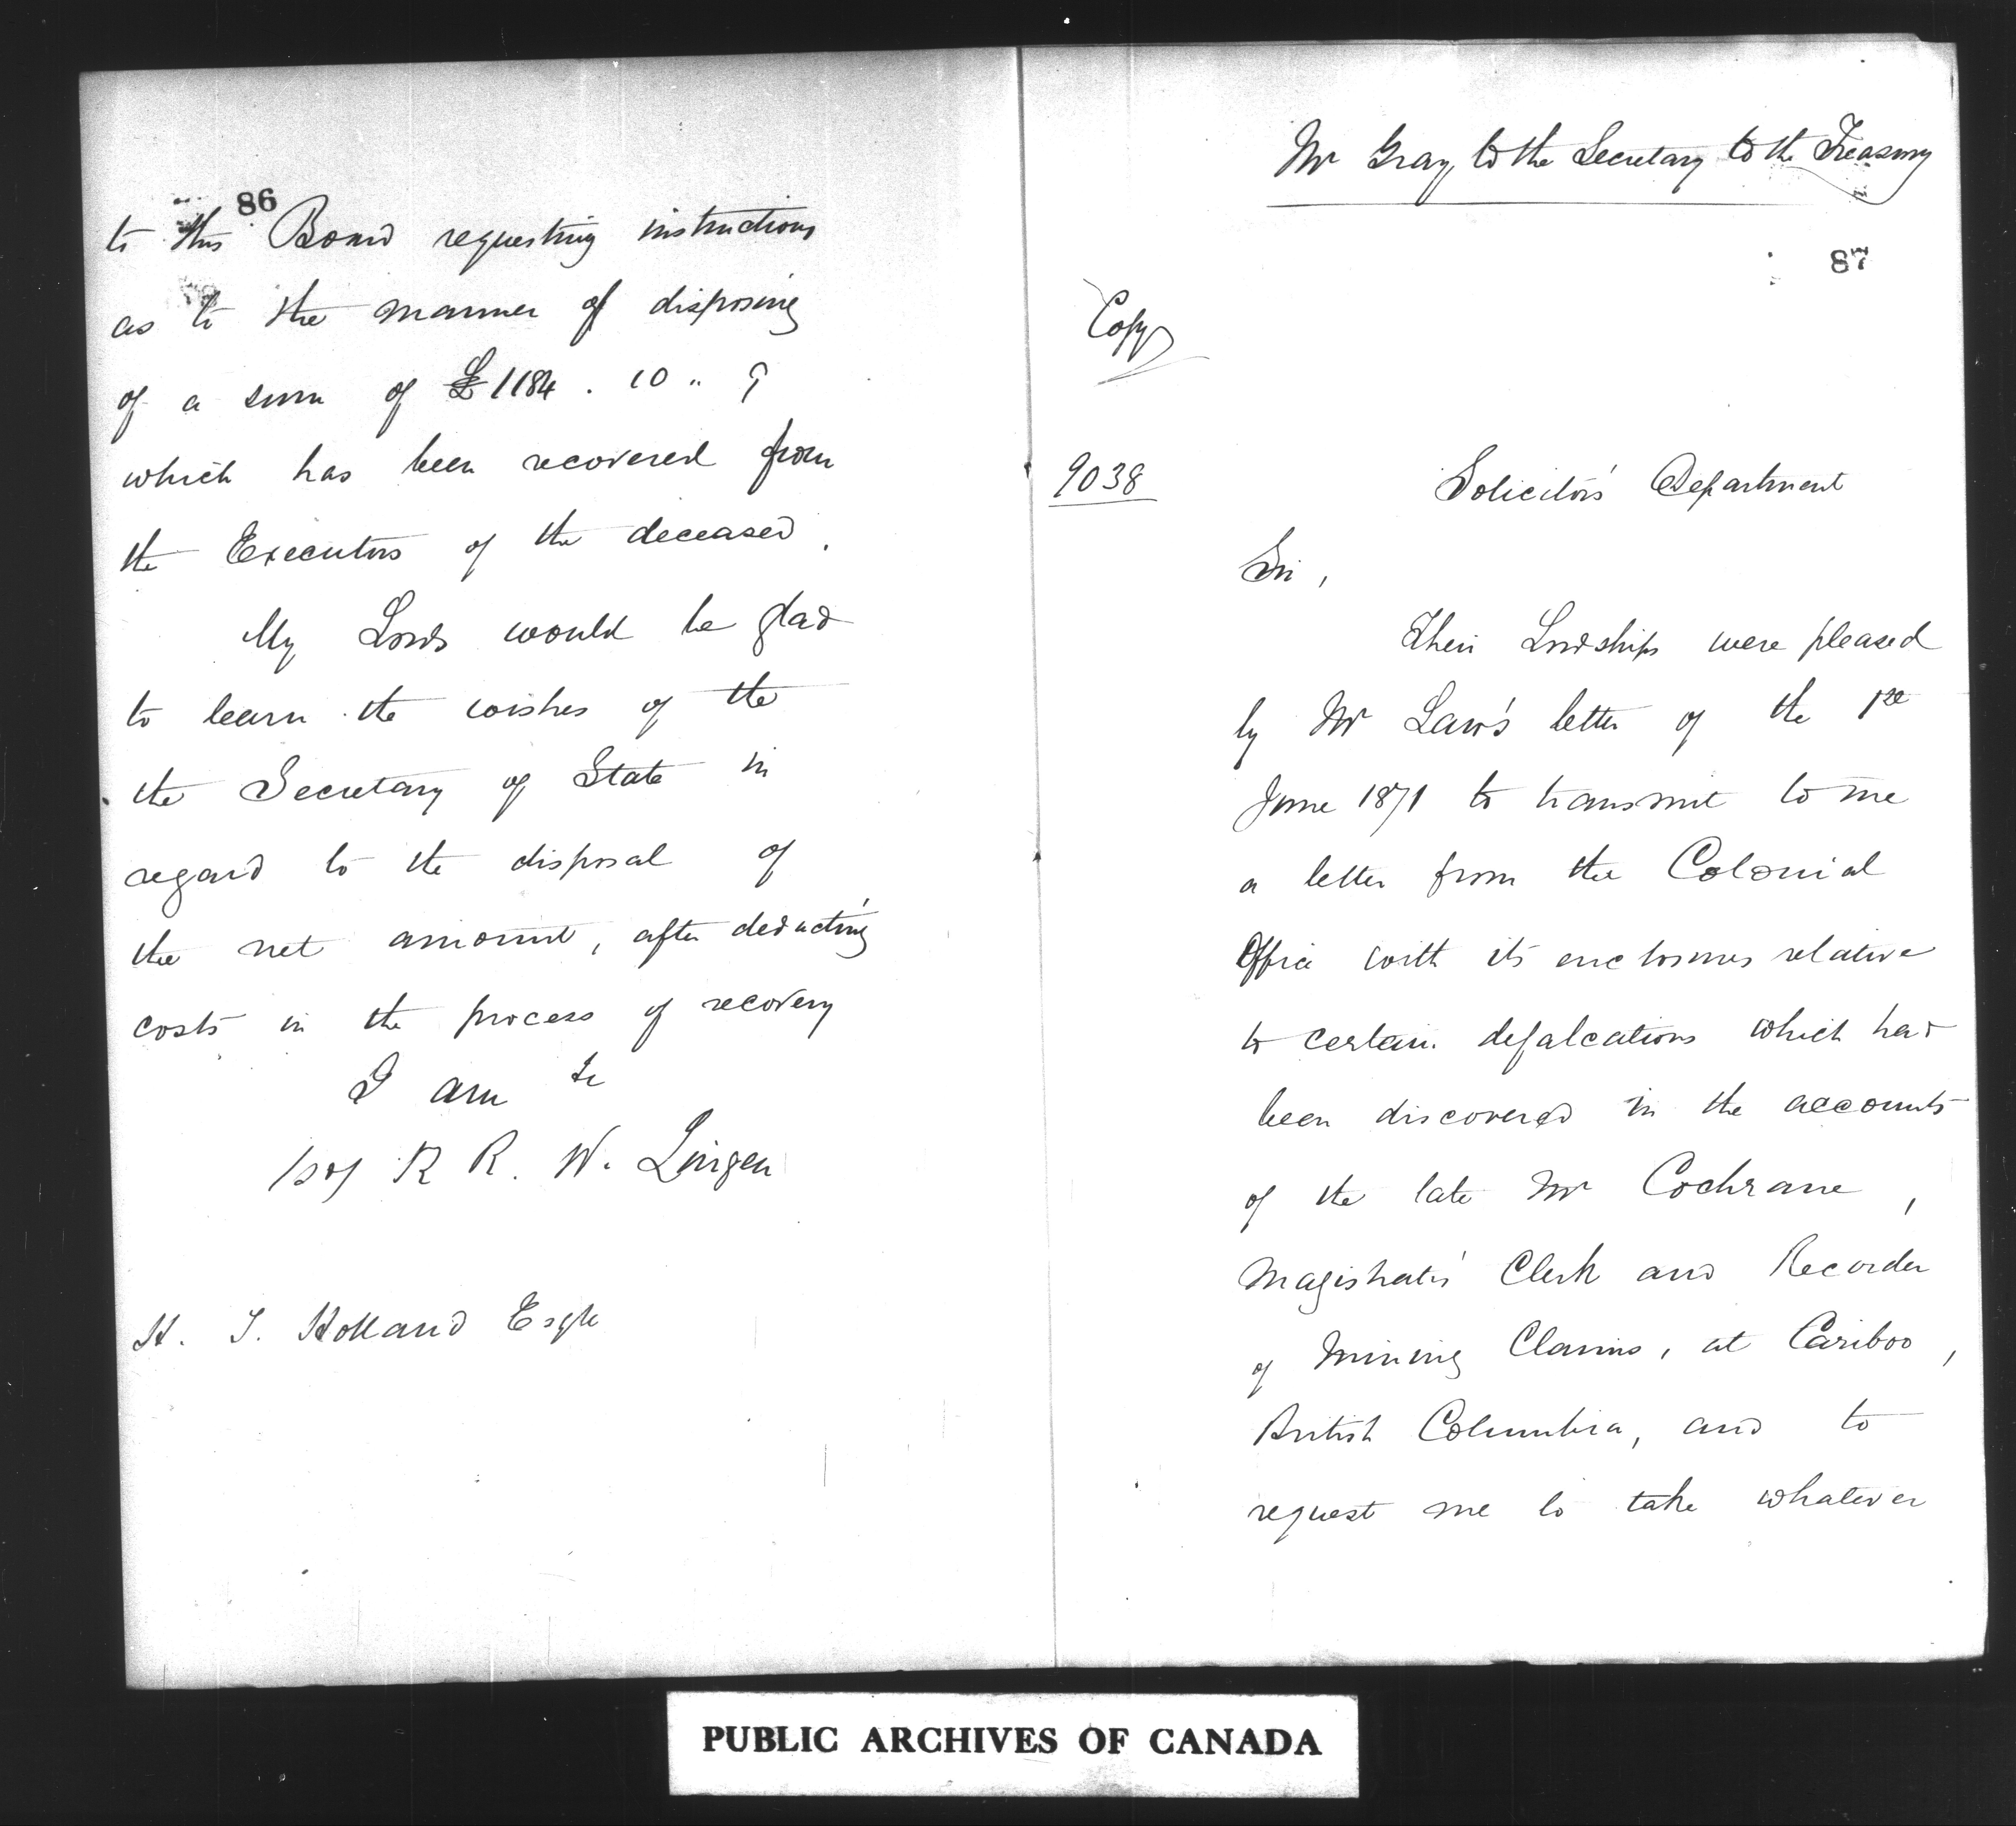 86
to this Board requesting instructions
as to the manner of disposing
of a sum of £1184 . 10 " 9
which has been recovered from
the Executors of the deceased.
My Lords would be glad
to learn the wishes of the
the Secretary of State in
regard to the disposal of
the net amount, after deducting
costs in the process of recovery
I am &c
/sd/ R R. W. Lingen
H. T. Holland Esqre
Mr Gray to the Secretary to the Treasury
87
Copy
9038
Solicitors' Department
Sir,
Their Lordships were pleased
by Mr Law's letter of the 1st
June 1871 to transmit to me
a letter from the Colonial
Office with its enclosures relative
to certain defalcations which had
been discovered in the accounts
of the late Mr Cochrane,
Magistrates' Clerk and Recorder
of Mining Claims, at Cariboo,
British Columbia, and to
request me to take whatever
PUBLIC ARCHIVES OF CANADA